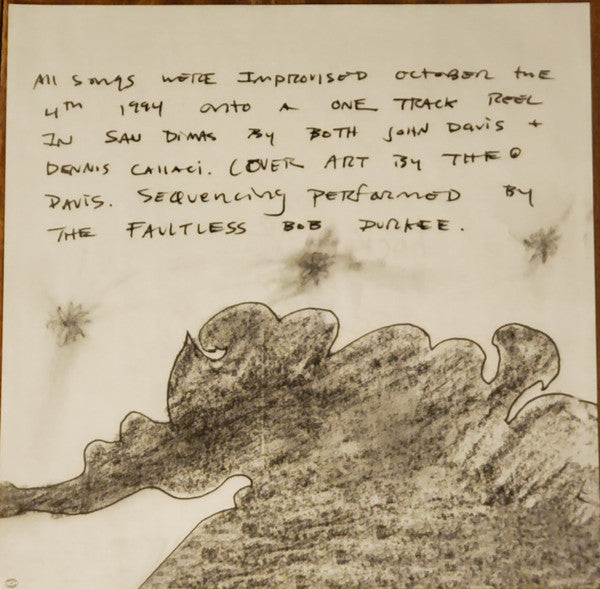 All Songs WERE IMPROVISED OCTOBER THE
4TH 1994 ONTO A ONE TRACK REEL
IN SAN DIMAS BY BOTH JOHN DAVIS +
DENNIS CALLACI. COVER ART BY THEO
DAVIS. SEQUENCING PERFORMED BY
THE FAULTLESS BOB DURKEE.